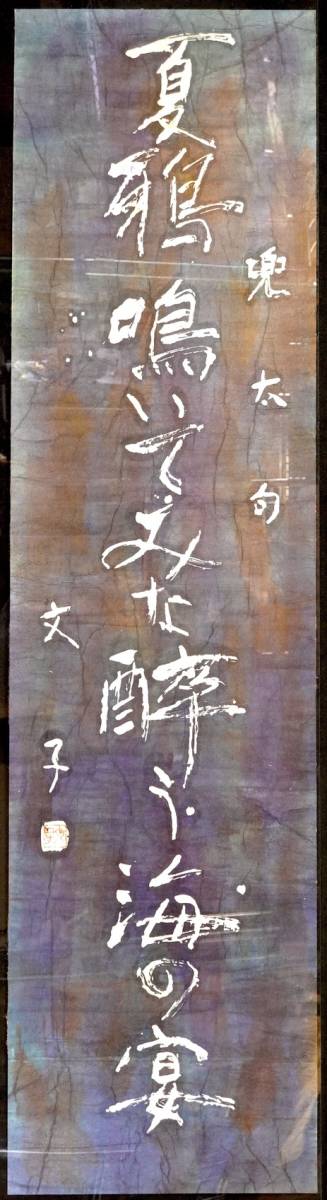 兜太句
夏鴉鳴いてみな酔う海の宴
文子